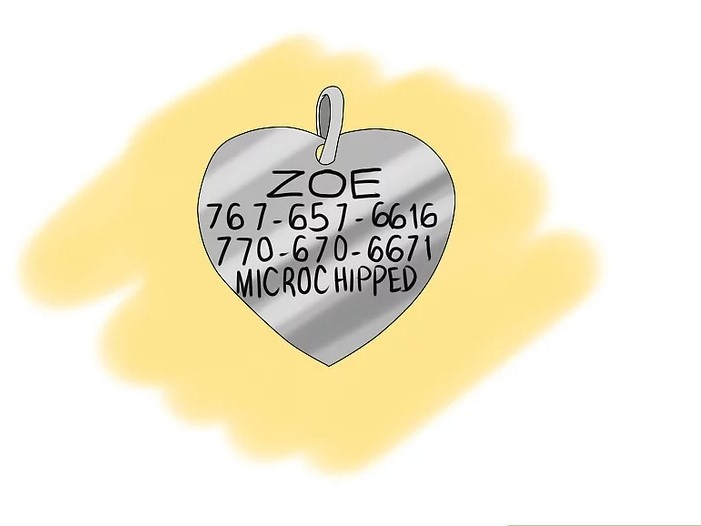 ZOE
767-657-6616
770-670-6671
MICROCHIPPED